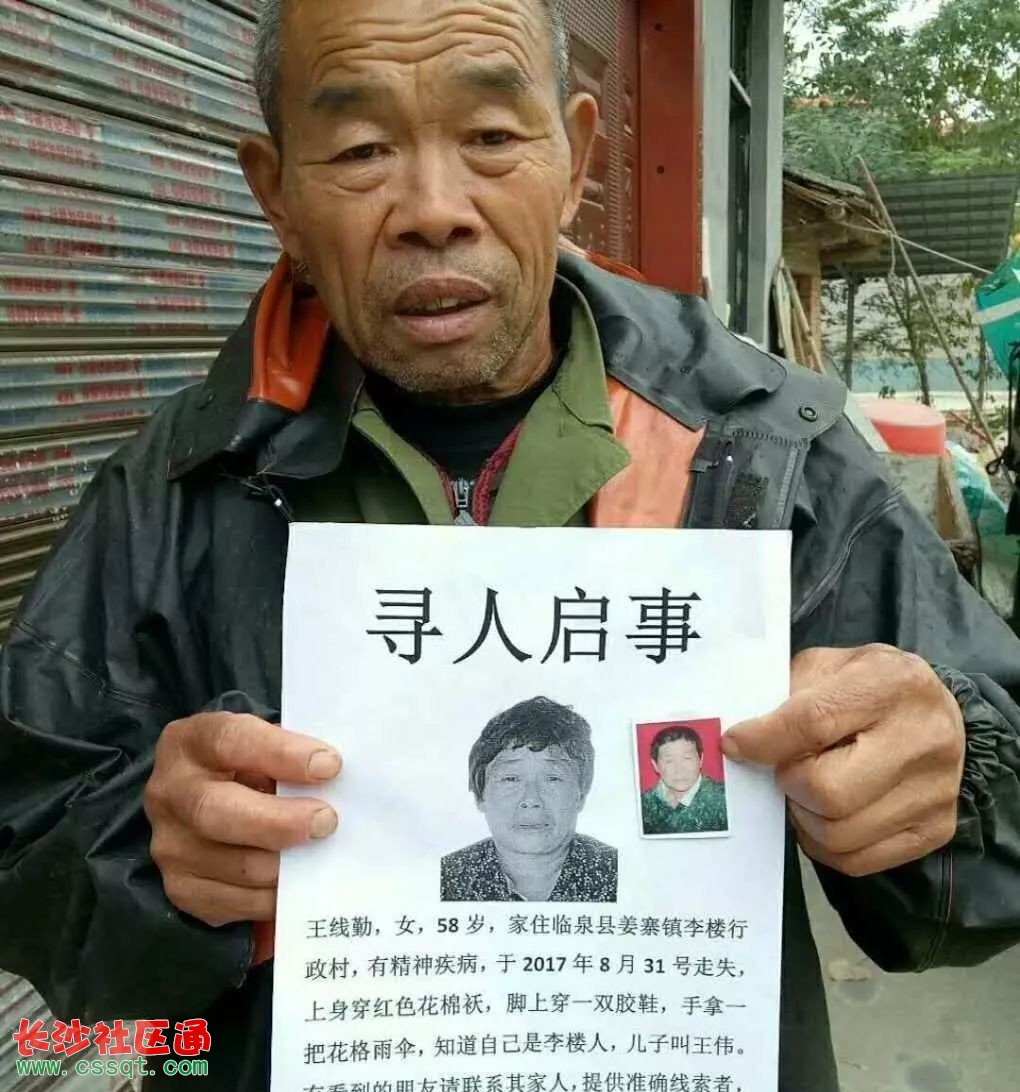 寻人启事
王线勤，女，58岁，家住临泉县姜寨镇李楼行
政村，有精神疾病，于2017年8月31号走失，
上身穿红色花棉袄，脚上穿一双胶鞋，手拿一
把花格雨伞，知道自己是李楼人，儿子叫王伟。
有看到的朋友请联系其家人，提供准确线索者，
长沙社区通
www.cssqt.com